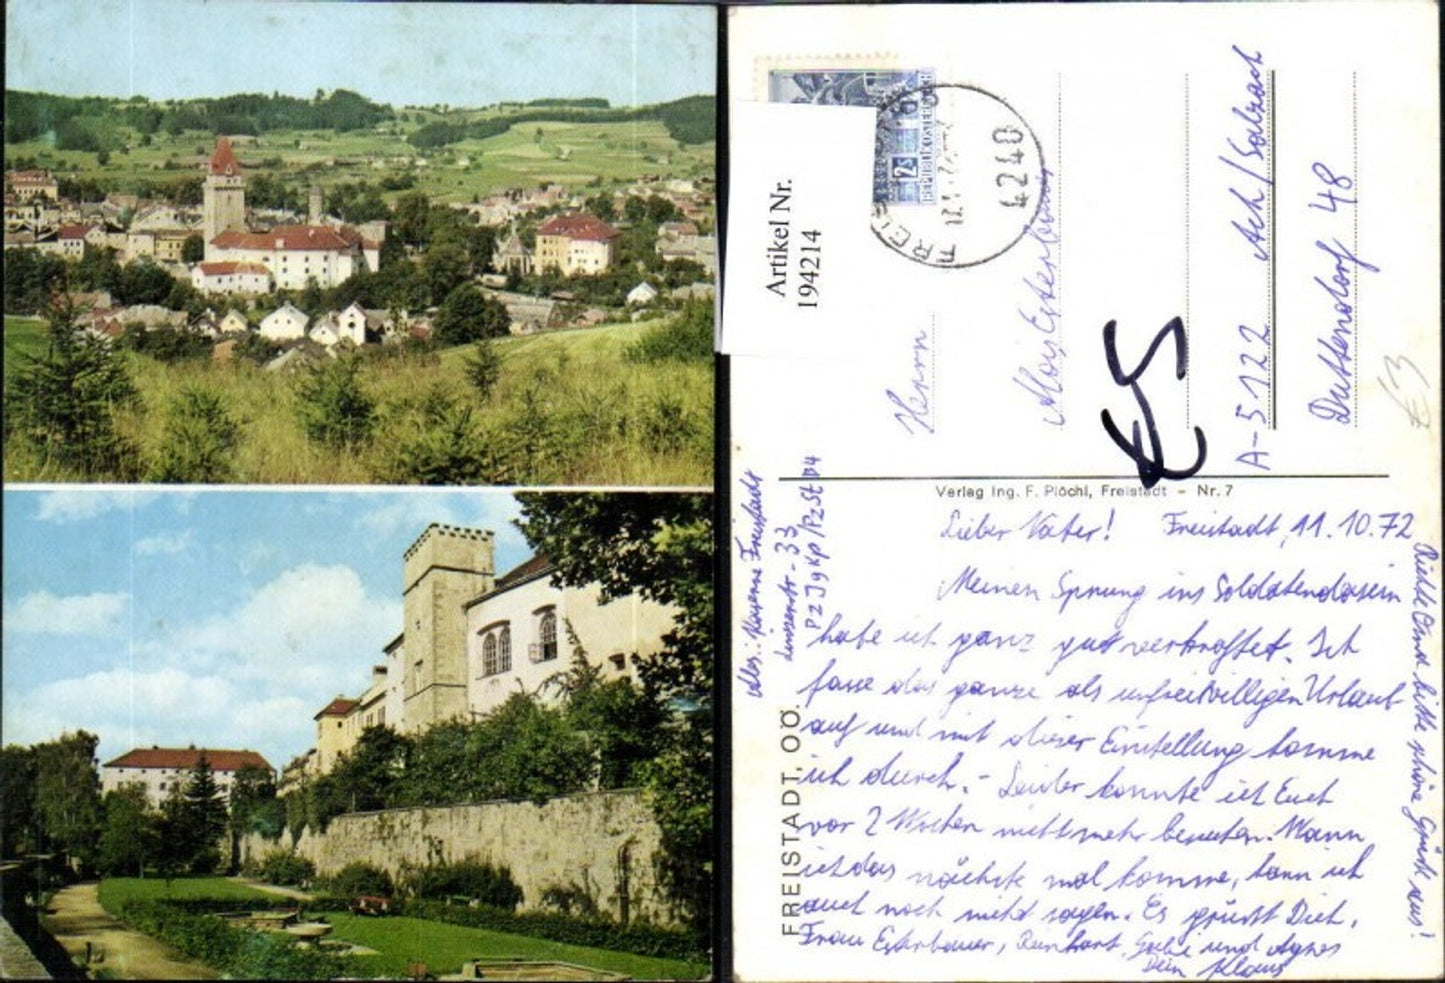 Artikel Nr.
194214
2s
REPUBLIK ÖSTERREICH
4240
Herrn
Alois Esterbauer
A-5122 Ach/Salzach
Duttendorf 48
€5
€3
Verlag Ing. F. Plöchl, Freistadt – Nr. 7
FREISTADT, OÖ.
Abs.: Kaserne Freistadt
Linzerstr. 33
Lieber Vater! Freistadt, 11.10.72
Meinen Sprung ins Soldatendasein
habe ich ganz gut verkraftet. Ich
fasse das ganze als unfreiwilligen Urlaub
auf und mit dieser Einstellung komme
ich durch. – Leider konnte ich Euch
vor 2 Wochen nicht mehr besuchen. Wann
ich das nächste mal komme, kann ich
auch noch nicht sagen. Es grüsst Dich,
Frau Esterbauer, Reinhart, Gabi und Agnes
Dein Klaus
Richte Omi bitte schöne Grüße aus!